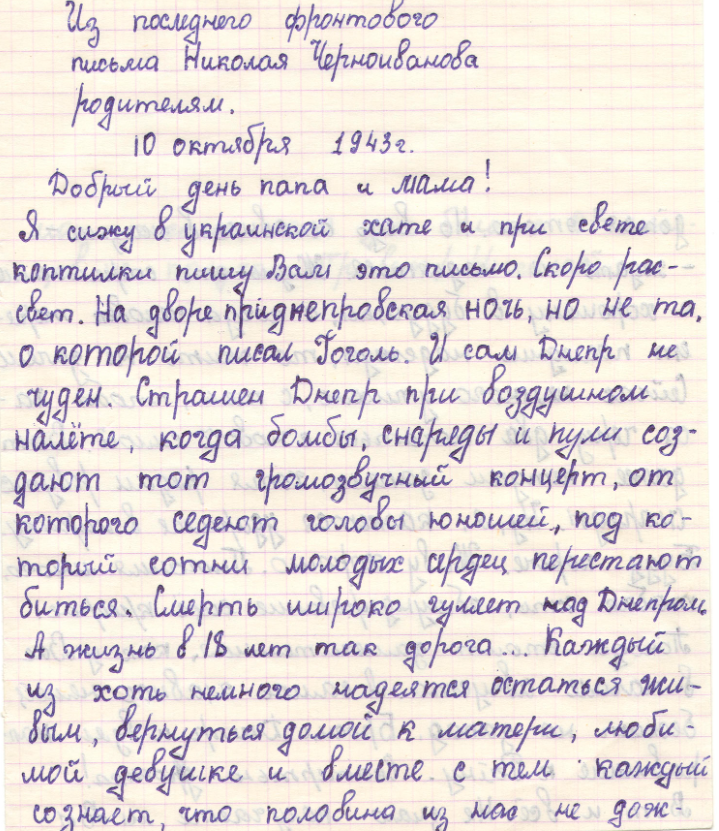 Из последнего фронтового
письма Николая Черноиванова
родителям.
10 октября 1943г.
Добрый день папа и мама!
Я сижу в украинской хате и при свете
коптилки пишу Вам это письмо. Скоро рас-
свет. На дворе приднепровская ночь, но не та,
о которой писал Гоголь. И сам Днепр не
чуден. Страшен Днепр при воздушном
налёте, когда бомбы, снаряды и пули соз-
дают тот громозвучный концерт, от
которого седеют головы юношей, под ко-
торый сотни молодых сердец перестают
биться. Смерть широко гуляет над Днепром.
А жизнь в 18 лет так дорога... Каждый
из хоть немного надеятся остаться жи-
вым, вернуться домой к матери, люби
мой девушке и вместе с тем каждый
сознаёт, что половина из нас не дож